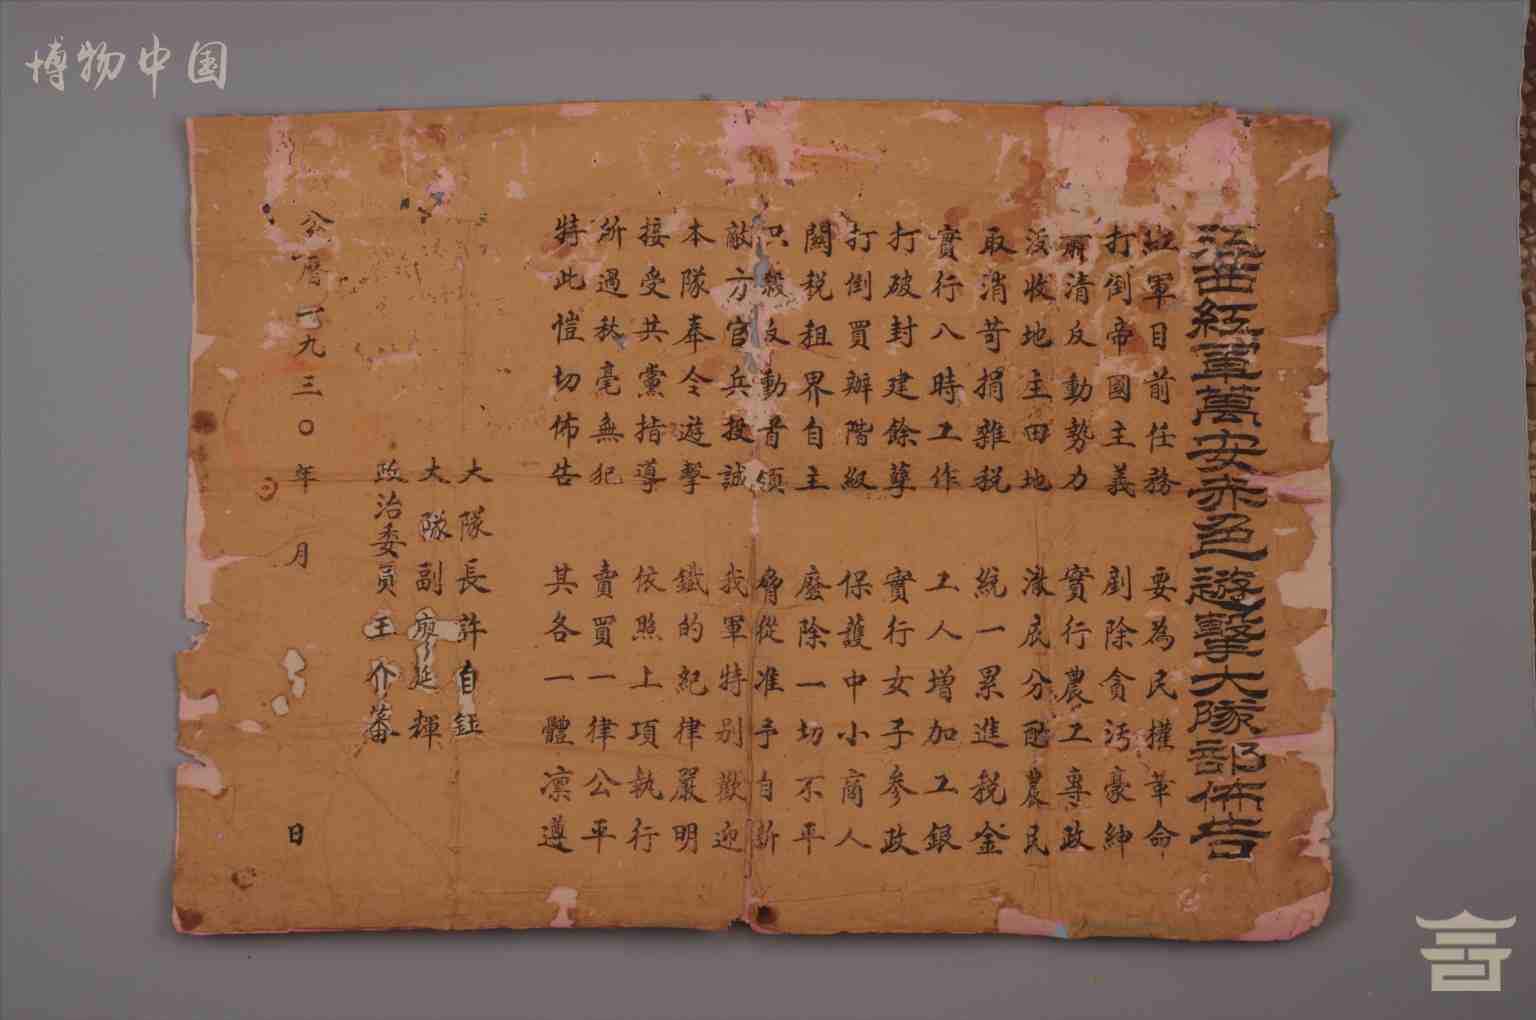 博物中国
江西紅軍萬安赤色遊擊大隊部佈告
紅軍目前任務 要為民權革命
打倒帝國主義 剷除貪污豪紳
肅清反動勢力 實行農工專政
沒收地主田地 澈底分配農民
取消苛捐雜稅 統一累進稅金
實行八時工作 工人增加工銀
打破封建餘孽 實行女子參政
打倒買辦階級 保護中小商人
關稅租界自主 廢除一切不平
只殺反動首領 脅從准予自新
敵方官兵投誠 我軍特别歡迎
本隊奉令遊擊 鐵的紀律嚴明
接受共黨指導 依照上項執行
所過秋毫無犯 賣買一律公平
特此愷切佈告 其各一體凛遵
大隊長許自鈺
大隊副廖延輝
政治委員王介蕃
公曆一九三〇年 月 日